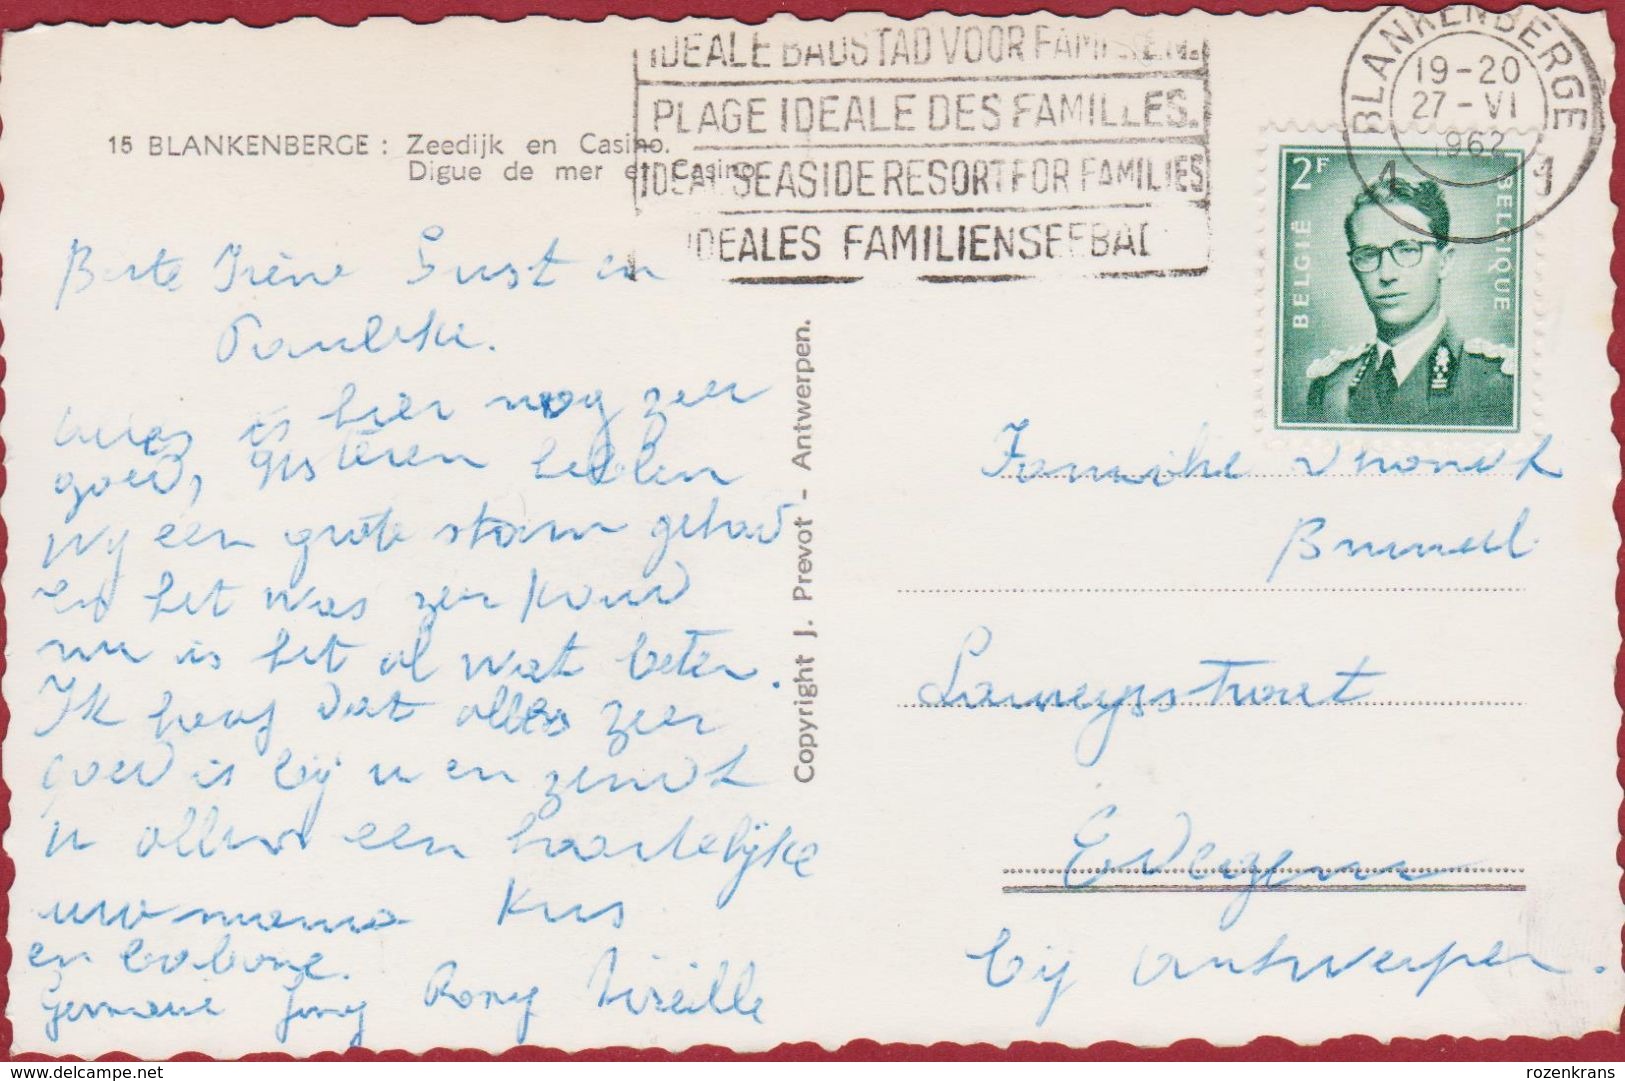 IDEALE BADSTAD VOOR FAMILIEN.
PLAGE IDEALE DES FAMILLES.
IDEAL SEASIDE RESORT FOR FAMILIES
IDEALES FAMILIENSEEBAD
BLANKENBERGE
19-20
27-VI
1962
1 1
2F
BELGIË
BELGIQUE
15 BLANKENBERGE : Zeedijk en Casino.
Digue de mer et Casino
Copyright J. Prevot - Antwerpen.
Beste Irène Gust en
Pauleke.
alles is hier nog zeer
goed, gisteren hebben
wy een grote storm gehad
en het was zeer koud
nu is het al wat beter.
Ik hoop dat alles zeer
goed is bij u en zendt
u allen een hartelijke
uw mama kus
en bobonne.
Germaine Jony Rony Mireille
Familie
Laneysstraat
Edegem
bij Antwerpen.
Meer delcampe.net
rozenkrans